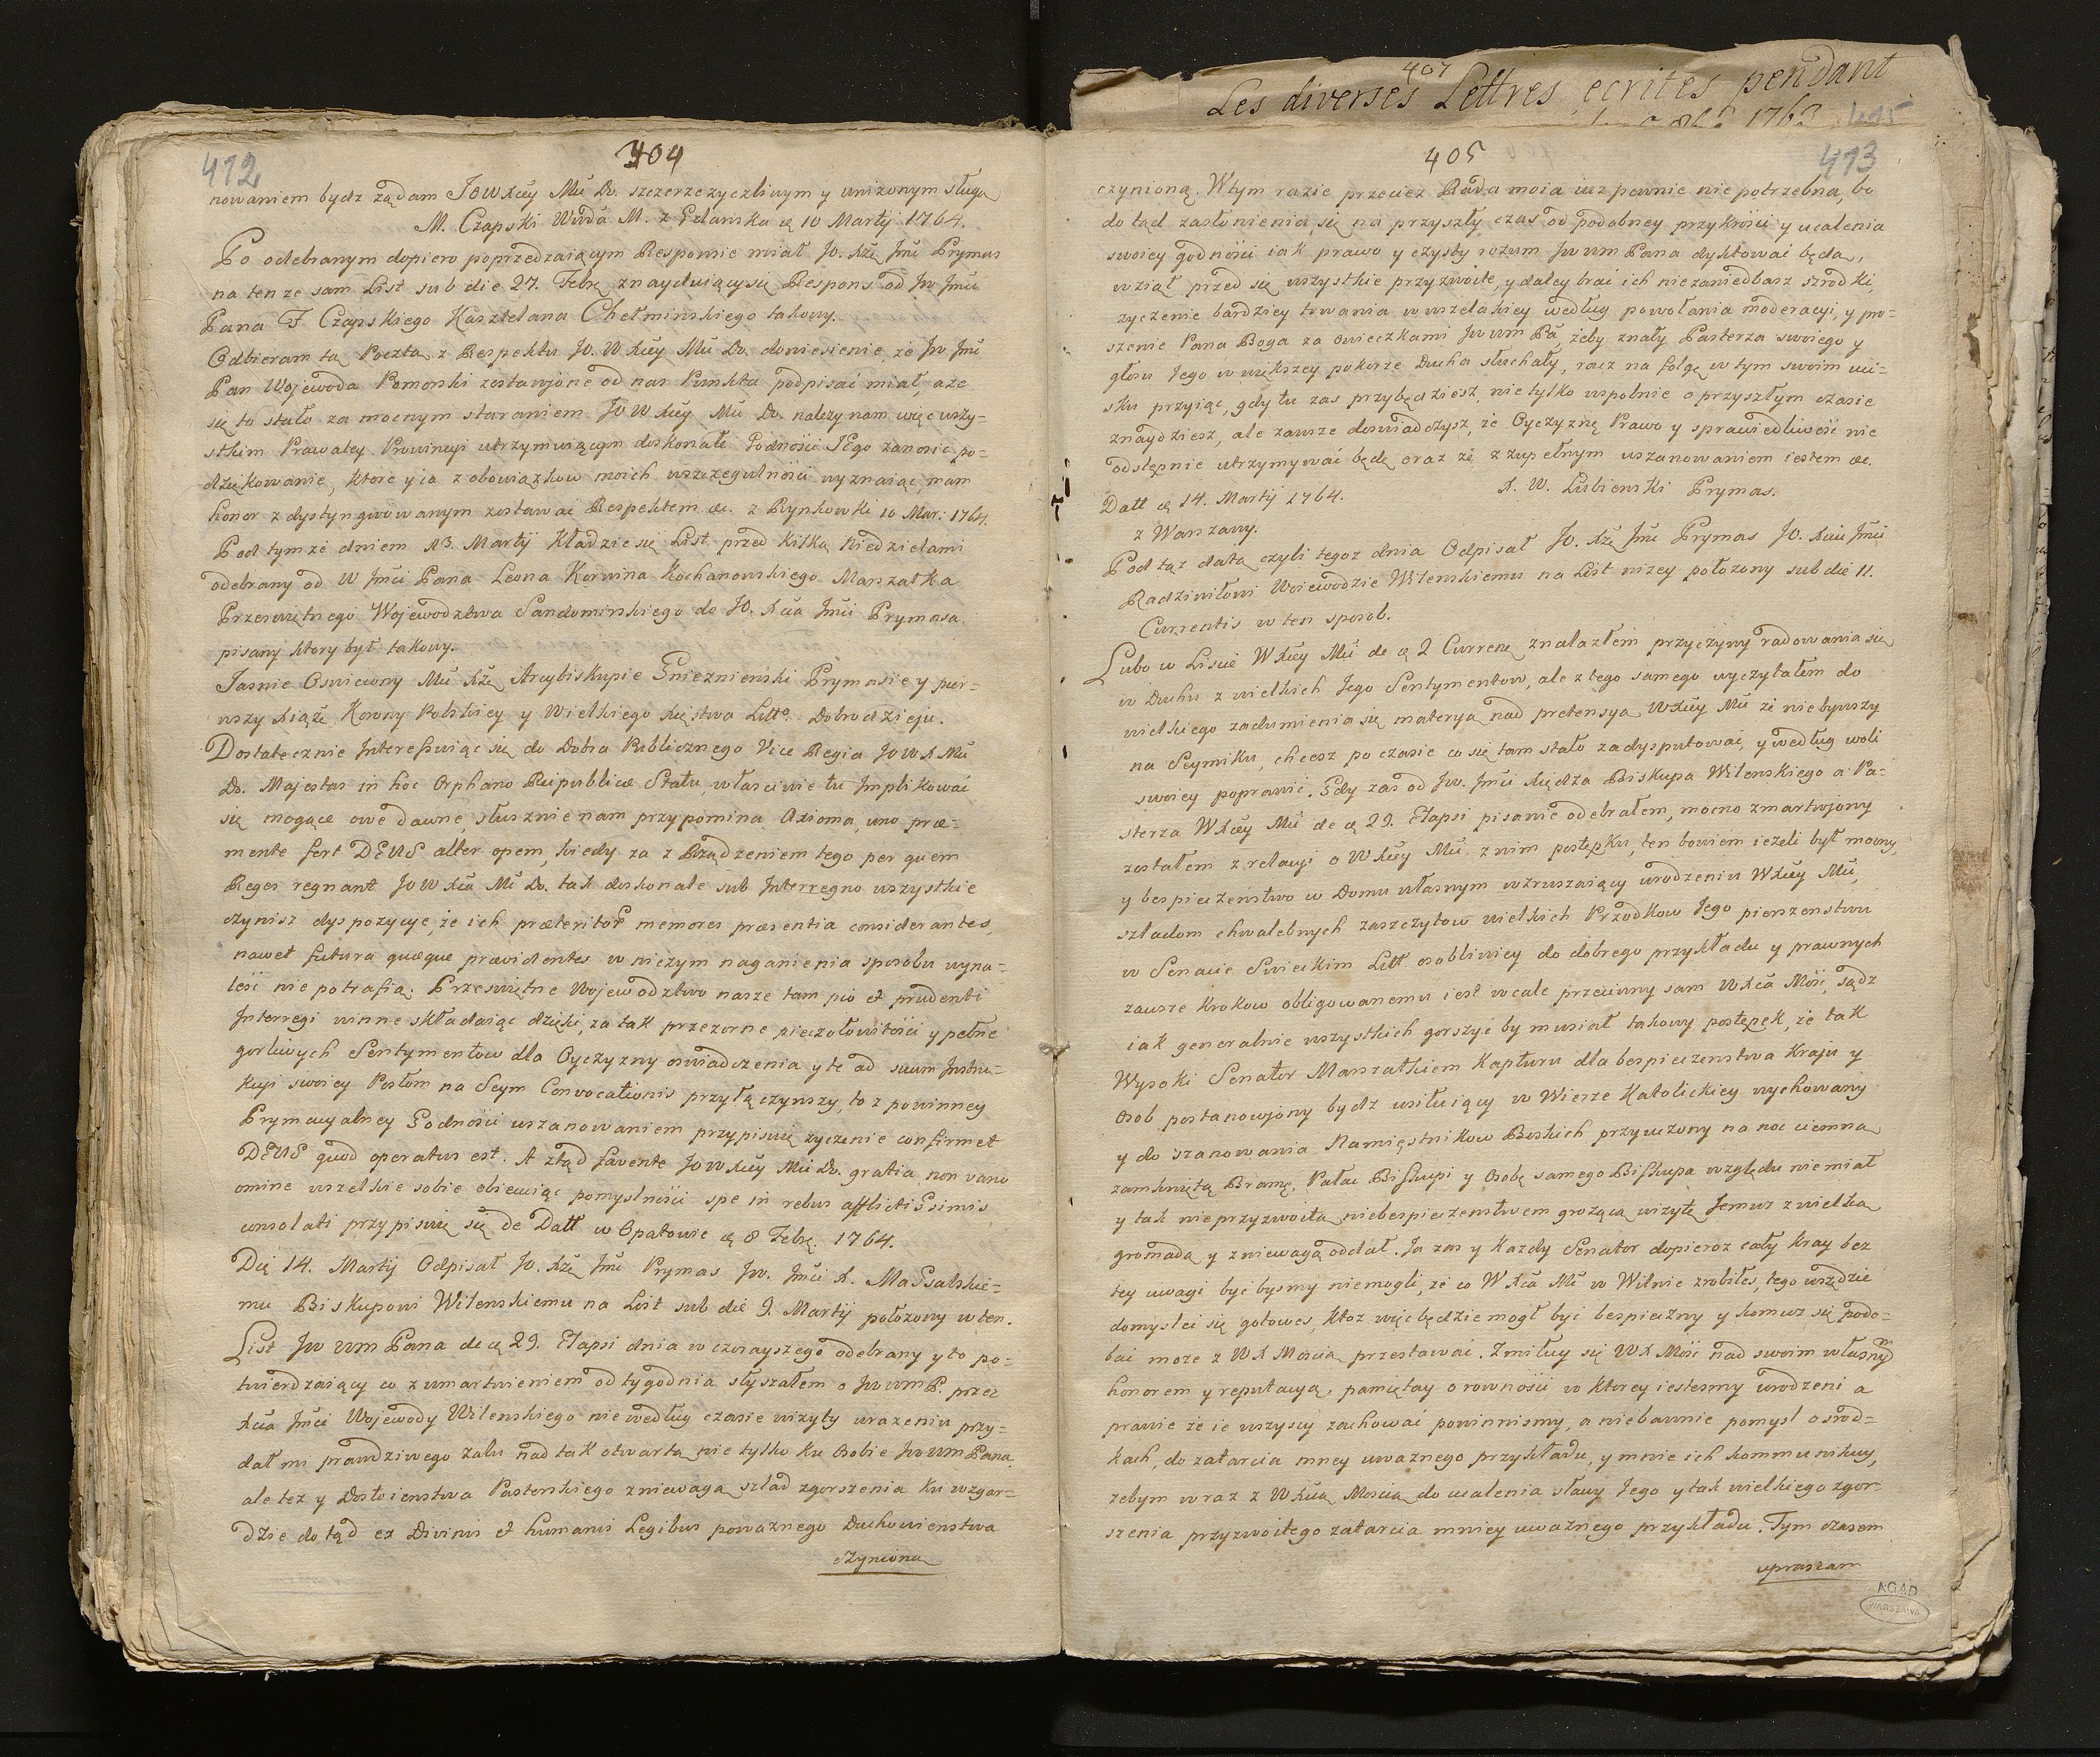 412
404
nowaniem bydz żądam JOWXcey Mći Do. szczerze zyczliwym y unizonym sługą
M. Czapski Wwda M. z Gdanska d. 10 Martij 1764.
Po odebranym dopiero poprzedzaiącym Responsie miał Jo. Xże Jmć Prymas
na ten ze sam List sub die 27. Febr. znayduiący się Respons od Jw Jmći
Pana F Czapskiego Kasztelana Chełminskiego takowy.
Odbieram tą Pocztą z Respektu Jo. W Xcey Mći Do. doniesienie, że Jw Jmć
Pan Wojewoda Pomorski zostawjone od nas Punkta podpisać miał, a że
się to stało za mocnym staraniem JOW Xcey Mći Do. nalezy nam więc wszy-
stkim Prawa tey Prowincyi utrzymuiącym doskonałe Godności JEgo zanosić po-
dziękowanie, ktore y ia z obowiązkow moich wszczegulności wyznaiąc, mam
honor z dystyngwowanym zostawać Respektem &c. z Rynkowki 10 Mar: 1764.
Pod tymże dniem 13. Martij kładzie się List przed kilką Niedzielami
odebrany od W Jmći Pana Leona Korwina Kochanowskiego Marszałka
Przeswietnego Wojewodztwa Sandomirskiego do JO. Xcia Jmći Prymasa
pisany ktory był takowy.
Jasnie Oswiecony Mći Xże Arcybiskupie Gnieznienski Prymasie y pier-
wszy Xiąże Korony Polskiey y Wielkiego Xięstwa Litto. Dobrodzieju.
Dostatecznie Interessuiąc się do Dobra Publicznego Vice Regia JOWXMći
Do. Majestas in hoc Orphano Reipublicæ Statu, własciwie tu Implikować
się mogące owe dawne, słusznie nam przypomina Axioma, uno præ-
mente fert DEUS alter opem, kiedy za z Rządzeniem tego per quem
Reges regnant JOW Xca Mć Do. tak doskonale sub Interregno wszystkie
czynisz dyspozycye, że ich præteritor. memores præsentia considerantes,
nawet futura quæque prævidentes w niczym naganienia sposobu wyna-
leść nie potrafią. Przeswietne Wojewodztwo nasze tam pio et prudenti
Interregi winne składaiąc dzięki, za tak przezorne pieczołowitości y pełne
gorliwych Sentymentow dla Oyczyzny oswiadczenia y te ad suum Instru-
kcyi swoiey Posłom na Seym Convocationis przyłączywszy, to z powinney
Prymacyalney Godności uszanowaniem przypisuię zyczenie confirmet
DEUS quod operatus est. A ztąd favente JOWXcey Mći Do. gratia non vano
omine wszelkie sobie obiecuiąc pomyslności spe in rebus afflictissimis
consolati przypisuię się de Datt w Opatowie d. 8 Febr. 1764.
Die 14. Martij Odpisał Jo. Xże Jmć Prymas Jw. Jmći X. Massalskie-
mu Biskupowi Wilenskiemu na List sub die 9. Martij położony w ten.
List Jw wm Pana de d. 29. Elapsi dnia wczorayszego odebrany y to po-
twierdzaiący co z umartwieniem od tygodnia słyszałem o Jwwm P. przez
Xcia Jmći Wojewody Wilenskiego nie według czasie wizyty urażeniu przy-
dał mi prawdziwego zalu nad tak otwartą nie tylko ku Osobie Jwwm Pana,
ale tez y Dostoienstwa Pasterskiego zniewagą sztad zgorszenia ku wzgar-
dzie dotąd ex Divinis et humanis Legibus powaznego Duchowienstwa
czynioną
407
Les diverses Lettres ecrites pendant
1763
415
405
413
czynioną. Wtym razie przeciez Rada moia iuz pewnie nie potrzebna, bo
do tąd zasłonienia się na przyszły czas od podobney przykrości y ucalenia
swoiey godności iak prawo y czysty rozum Jwwm Pana dyktować będą,
wziął przed się wszystkie przyzwoite, y daley brać ich nie zaniedbasz szrodki,
zyczenie bardziey trwania w wszelakiey według powołania moderacyi, y pro-
szenie Pana Boga za owieczkami Jwwm Pa, żeby znały Pasterza swoiego y
głosu Jego w większey pokorze Ducha słuchały, racz na folgę w tym swoim uci-
sku przyiąć, gdy tu zas przybędziesz, nie tylko wspolnie o przyszłym czasie
znaydziesz, ale zawsze doswiadczysz, że Oyczyznę Prawo y sprawiedliwość nie
odstępnie utrzymywać będę oraz że z zupełnym uszanowaniem iestem &c.
Datt d. 14. Martij 1764. X. W. Lubienski Prymas.
z Warszawy.
Pod tąz datą czyli tegoz dnia Odpisał Jo. Xże Jmć Prymas Jo. Xciu Jmći
Radziwiłowi Woiewodzie Wilenskiemu na List nizey położony sub die 11.
Currentis w ten sposob.
Lubo w Liscie WXcey Mći de d. 2 Curren. znalazłem przyczyny radowania się
w Duchu z wielkich Jego Sentymentow, ale z tego samego wyczytałem do
wielkiego zadumienia się materyą nad pretensyą WXcey Mći że niebywszy
na Seymiku, chcesz po czasie co się tam stało zadysputować, y według woli
swoiey poprawić. Gdy zas od Jw. Jmći Xiędza Biskupa Wilenskiego a Pa-
sterza WXcey Mći de d. 29. Elapsi pisanie odebrałem, mocno zmartwjony
zostałem z relacyi o WXcey Mći z nim postępku, ten bowiem iezeli był mocny,
y bespieczenstwo w Domu własnym wzruszaiący urodzeniu WXcey Mći,
szladom chwalebnych zaszczytow wielkich Przodkow Jego pierszenstwu
w Senacie Swieckim Litt osobliwiey do dobrego przykładu y prawnych
zawsze krokow obligowanemu iest wcale przeciwny sam WXca Mość, sądz
iak generalnie wszystkich gorszyć by musiał takowy postępek, że tak
Wysoki Senator Marszałkiem Kapturu dla bespieczenstwa Kraju y
Osob postanowjony bydz usiłuiący w Wierze Katolickiey wychowany
y do szanowania Namięstnikow Boskich przyuczony na noc ciemną
zamknięta Bramę, Pałac Biskupi y Osobę samego Biskupa względu nie miał
y tak nieprzyzwoitą niebespieczenstwem grożącą wizytę Jemuż z wielką
gromadą y zniewagą oddał. Ja zas y Kazdy Senator dopieroz cały kray bez
tey uwagi być bysmy niemogli, że co WXca Mć w Wilnie zrobiłeś, tego wszędzie
domyslei się gotowes, ktoz więc będzie mogł być bespieczny y komuz się podo-
bać może z WX Mością przestawać. Zmiłuy się WX Mość nad swoim własnym
honorem y reputacyą, pamiętay o rowności w ktorey iestesmy urodzeni a
prawie że ie wszyscy zachować powinnismy, a niebawnie pomysl o srod-
kach, do zatarcia mney uwaznego przykładu, y mnie ich kommunikuy,
zebym wraz z WXcią Moscią do ucalenia sławy Jego y tak wielkiego zgor-
szenia przyzwoitego zatarcia mniey uwaznego przykładu. Tym czasem
upraszam
AGAD
WARSZAWA